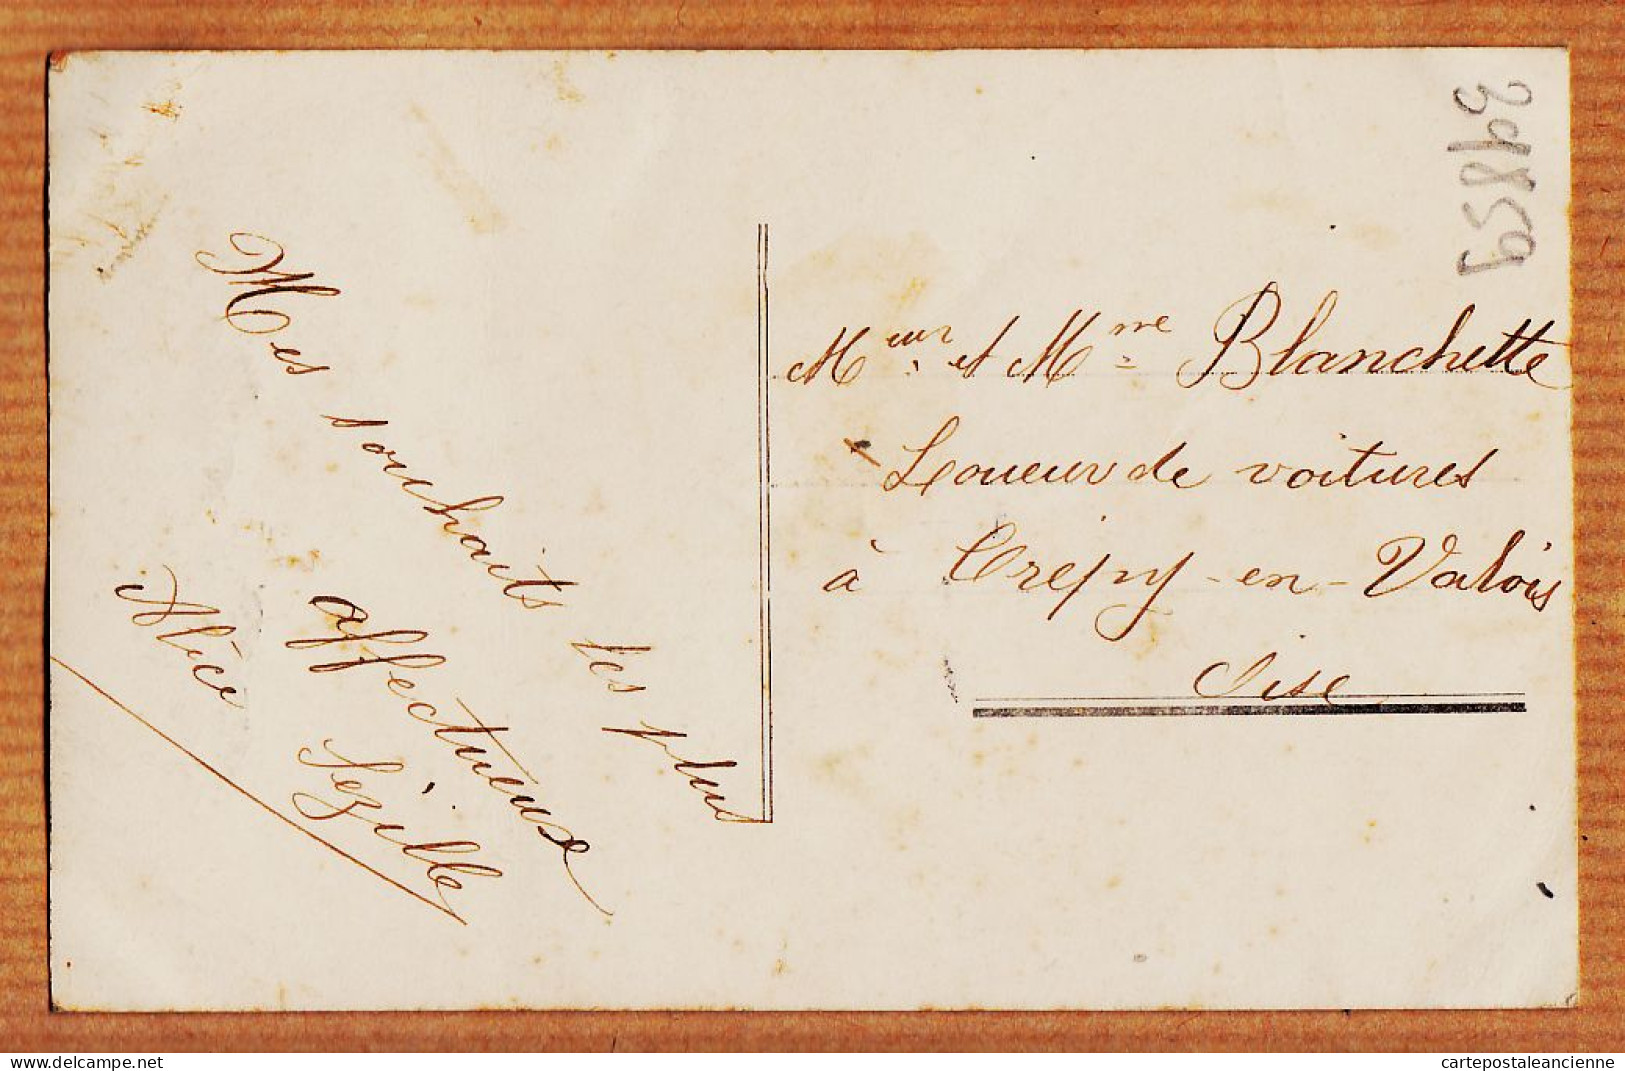 Mes souhaits les plus
affectueux
Alice Sézille
39859
Meur et Mme Blanchette
Loueur de voitures
à Crépy-en-Valois
Oise
delcampe.net
cartepostaleancienne